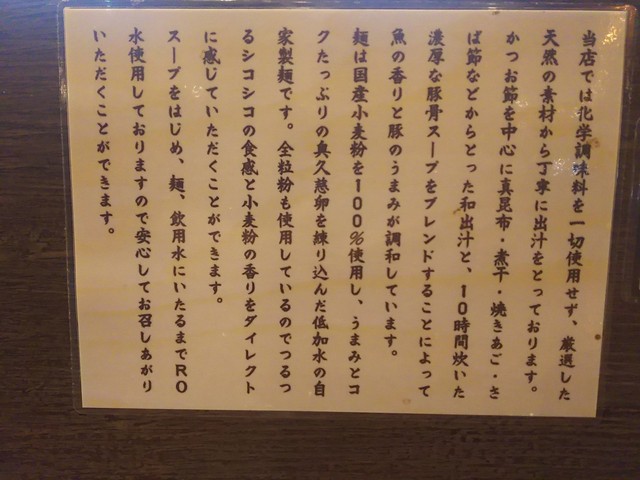 当店では化学調味料を一切使用せず、厳選した
天然の素材から丁寧に出汁をとっております。
かつお節を中心に真昆布・煮干・焼きあご・さ
ば節などからとった和出汁と、10時間炊いた
濃厚な豚骨スープをブレンドすることによって
魚の香りと豚のうまみが調和しています。
麺は国産小麦粉を100%使用し、うまみとコ
クたっぷりの奥久慈卵を練り込んだ低加水の自
家製麺です。全粒粉も使用しているのでつるっ
るシコシコの食感と小麦粉の香りをダイレクト
に感じていただくことができます。
スープをはじめ、麺、飲用水にいたるまでRO
水使用しておりますので安心してお召しあがり
いただくことができます。